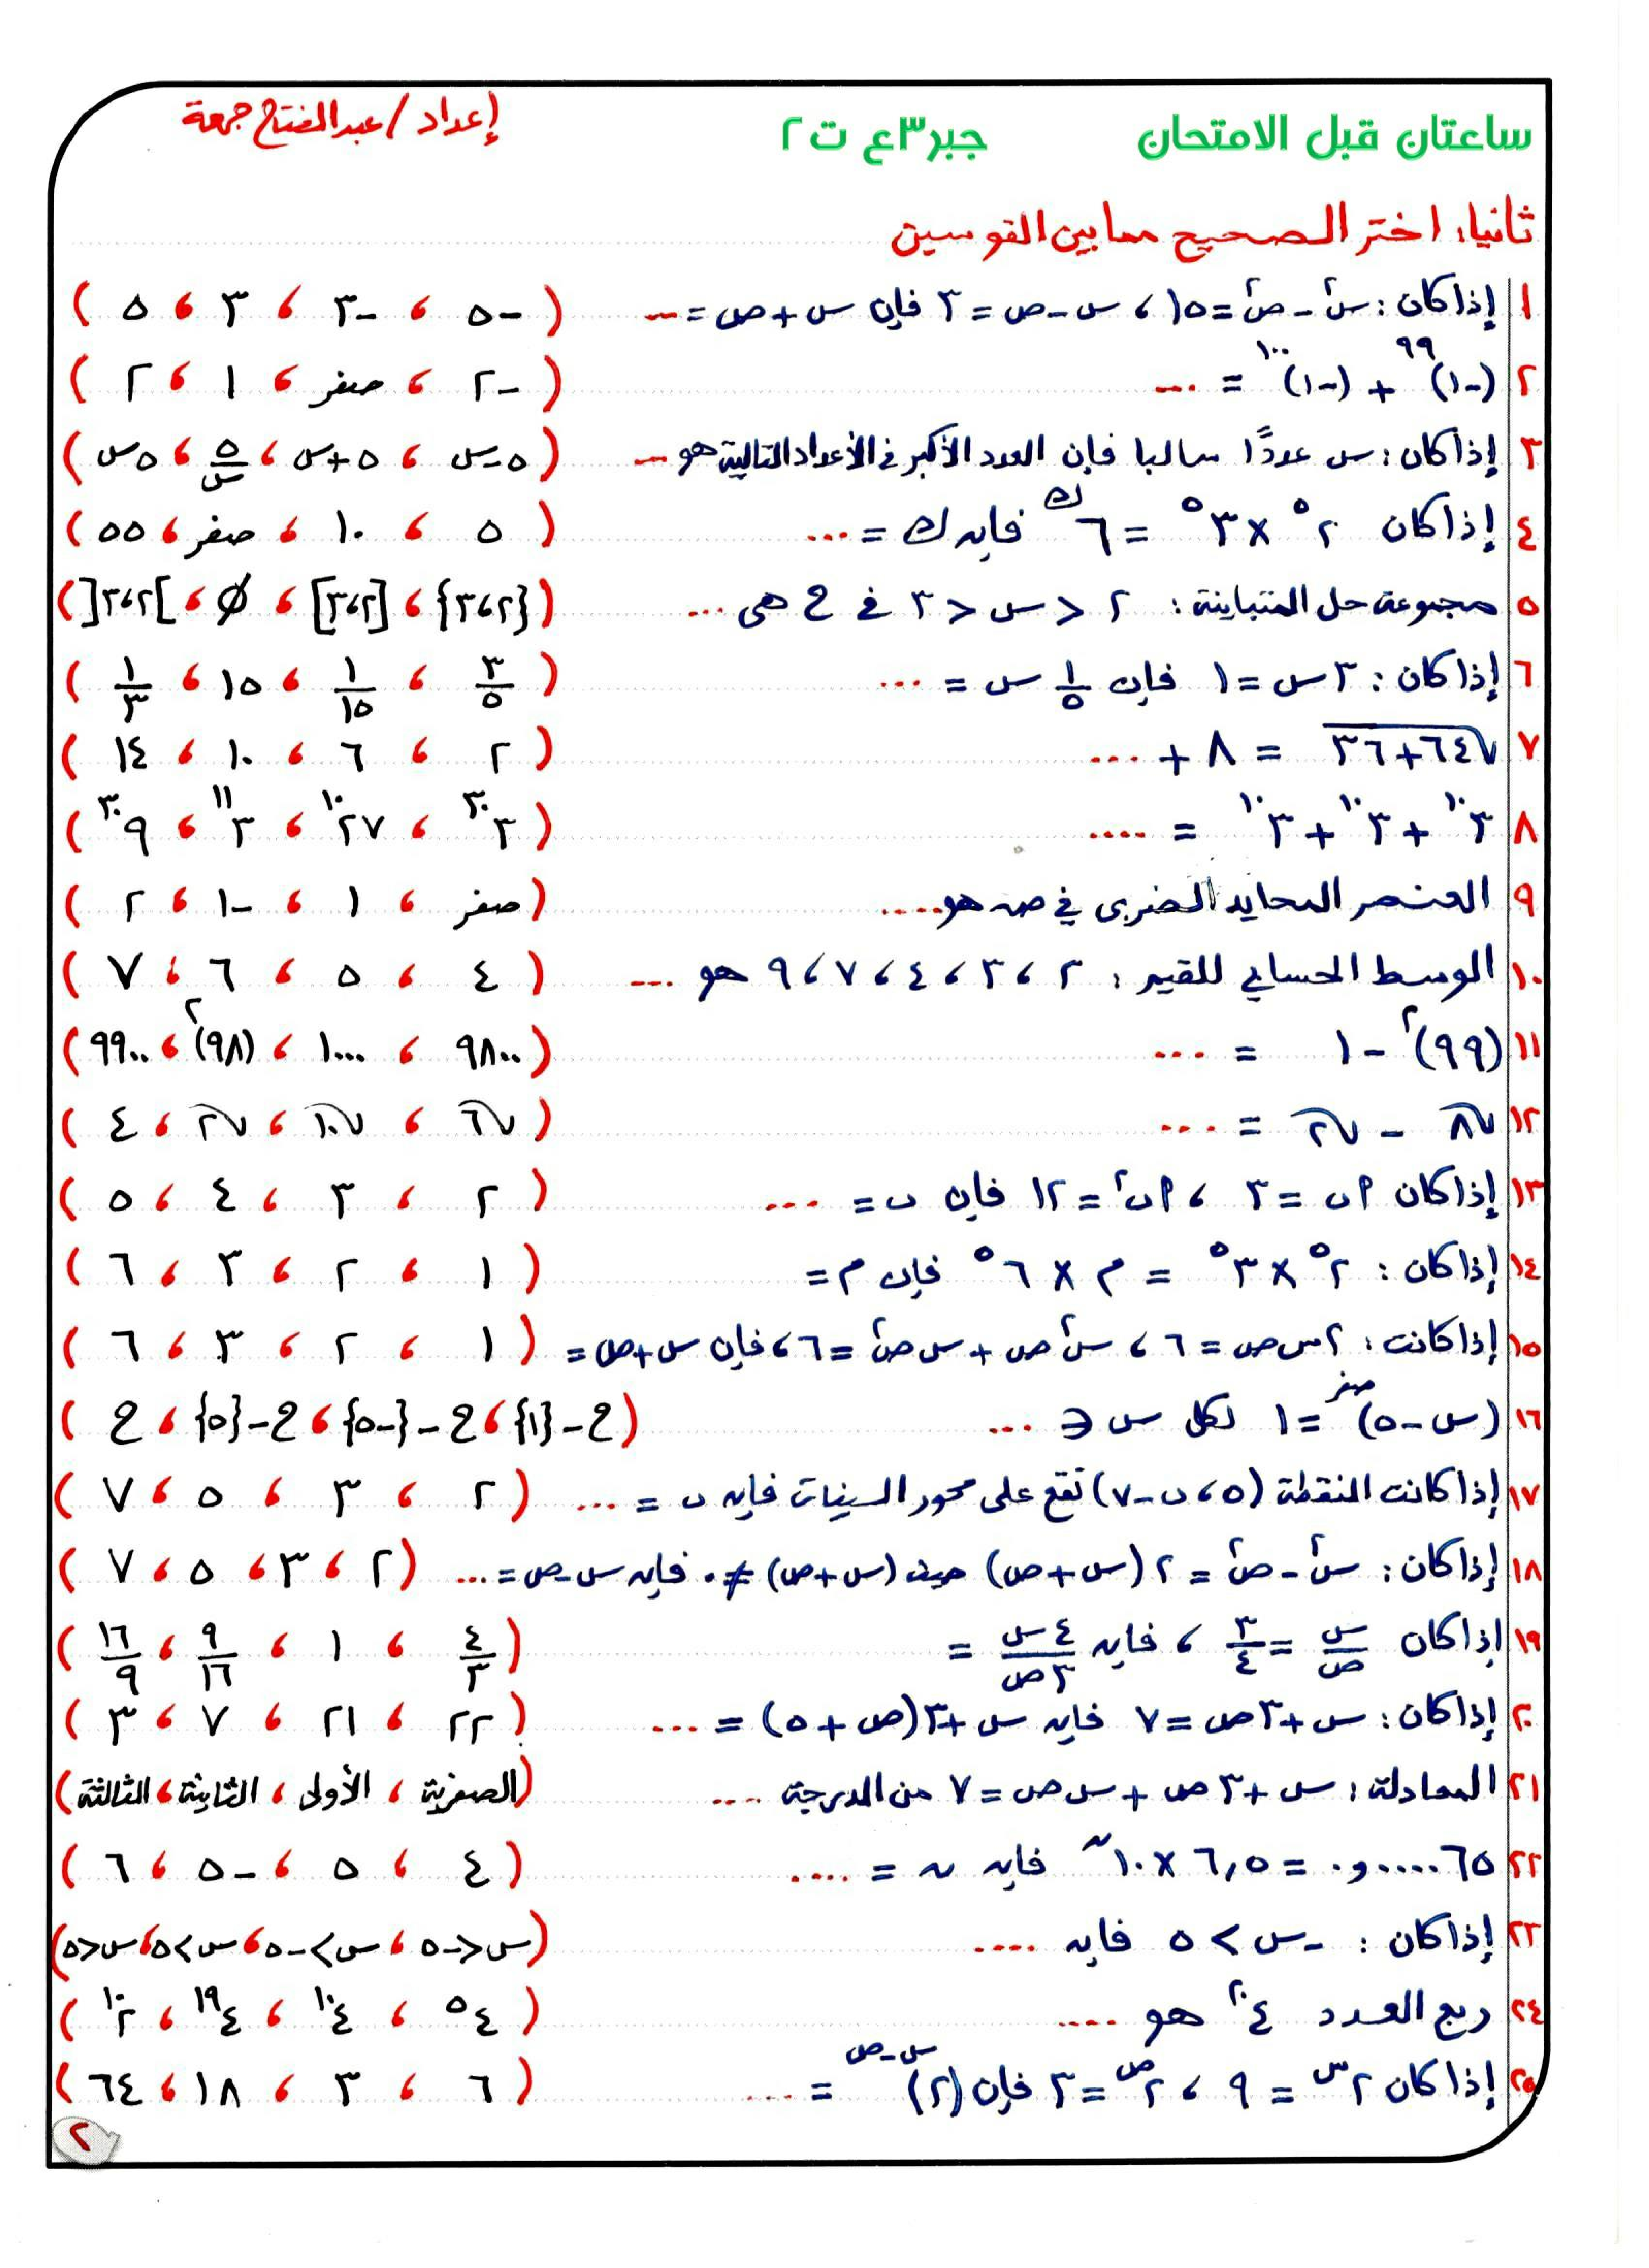 ساعتان قبل الامتحان جبر ٣ع ت٢ إعداد / عبد الفتاح جمعة
ثانيا: اختر الصحيح مما بين القوسين
١ إذا كان: س² - ص² = ١٥ ، س - ص = ٣ فإن س + ص = ... ( -٥ ، -٣ ، ٣ ، ٥ )
٢ (-١)⁹⁹ + (-١)¹⁰⁰ = ... ( -٢ ، صفر ، ١ ، ٢ )
٣ إذا كان: س عددًا سالبا فإن العدد الأكبر في الأعداد التالية هو ... ( ٥-س ، ٥+س ، ٥/س ، ٥س )
٤ إذا كان ٢⁵ × ٣⁵ = ٦^ك فإن ك = ... ( ٥ ، ١٠ ، صفر ، ٥٥ )
٥ مجموعة حل المتباينة: ٢ < س < ٣ في ح هى ... ( {٢،٣} ، [٢،٣] ، ∅ ، ]٢،٣[ )
٦ إذا كان: ٣س = ١ فإن ١/٥ س = ... ( ٣/٥ ، ١/١٥ ، ١٥ ، ١/٣ )
٧ √(٦٤+٣٦) = ٨ + ... ( ٢ ، ٦ ، ١٠ ، ١٤ )
٨ ٣¹⁰ + ٣¹⁰ + ٣¹⁰ = .... ( ٣³⁰ ، ٢٧¹⁰ ، ٣¹¹ ، ٩³⁰ )
٩ العنصر المحايد الضربى في صہ هو .... ( صفر ، ١ ، -١ ، ٢ )
١٠ الوسط الحسابي للقيم: ٢ ، ٣ ، ٤ ، ٧ ، ٩ هو ... ( ٤ ، ٥ ، ٦ ، ٧ )
١١ (٩٩)² - ١ = ... ( ٩٨٠٠ ، ١٠٠٠٠ ، (٩٨)² ، ٩٩٠٠ )
١٢ √٨ - √٢ = ... ( √٦ ، √١٠ ، √٢ ، ٤ )
١٣ إذا كان أب = ٣ ، أب² = ١٢ فإن ب = ... ( ٢ ، ٣ ، ٤ ، ٥ )
١٤ إذا كان: ٢⁵ × ٣⁵ = م × ٦⁵ فإن م = ( ١ ، ٢ ، ٣ ، ٦ )
١٥ إذا كانت: ٢س ص = ٦ ، س²ص + س ص² = ٦ ، فإن س + ص = ( ١ ، ٢ ، ٣ ، ٦ )
١٦ (س - ٥)^صفر = ١ لكل س ∈ ... ( ح-{١} ، ح-{-٥} ، ح-{٥} ، ح )
١٧ إذا كانت النقطة (٥ ، ب-٧) تقع على محور السينات فإن ب = ... ( ٢ ، ٣ ، ٥ ، ٧ )
١٨ إذا كان: س² - ص² = ٢(س + ص) حيث (س + ص) ≠ ٠ فإن س - ص = ... ( ٢ ، ٣ ، ٥ ، ٧ )
١٩ إذا كان س/ص = ٣/٤ ، فإن ٤س/٣ص = ( ٤/٣ ، ١ ، ٩/١٦ ، ١٦/٩ )
٢٠ إذا كان: س + ٣ص = ٧ فإن س + ٣(ص + ٥) = ... ( ٢٢ ، ٢١ ، ٧ ، ٣ )
٢١ المعادلة: س + ٣ص + س ص = ٧ من الدرجة .... ( الصفرية ، الأولى ، الثانية ، الثالثة )
٢٢ ٠و٠٠٠٠٠٦٥ = ٦,٥ × ١٠^ن فإن ن = .... ( ٤ ، ٥ ، -٥ ، ٦ )
٢٣ إذا كان: -س > ٥ فإن .... ( س < -٥ ، س > -٥ ، س > ٥ ، س < ٥ )
٢٤ ربع العدد ٤²⁰ هو .... ( ٤⁵ ، ٤¹⁰ ، ٤¹⁹ ، ٢¹⁰ )
٢٥ إذا كان ٢^س = ٩ ، ٢^ص = ٣ فإن (٢)^(س-ص) = .... ( ٦ ، ٣ ، ١٨ ، ٦٤ )
٢